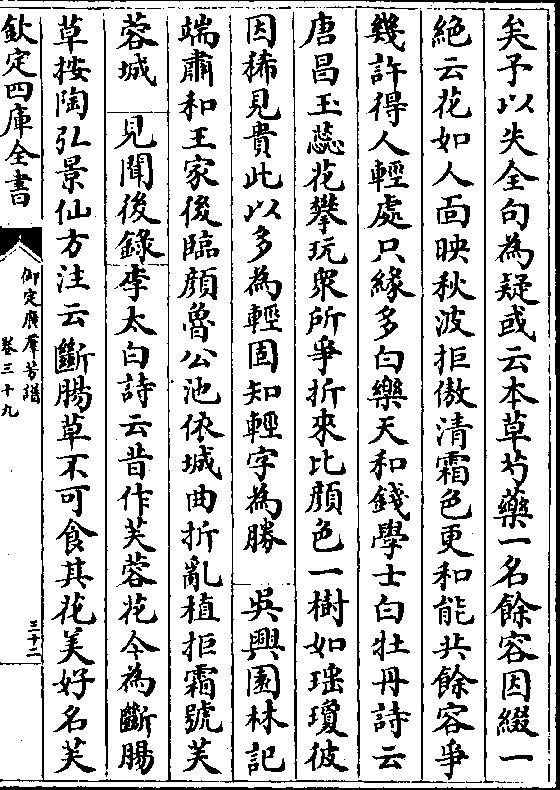 矣予以失全句為疑或云本草芍藥一名餘容因綴一
絕云花如人面映秋波拒傲清霜色更和能共餘容爭
幾許得人輕處只緣多白樂天和錢學士白牡丹詩云
唐昌玉蕊花攀玩衆所爭折來比顔色一樹如瑶瓊彼
因稀見貴此以多為輕固知輕字為勝 吳興園林記
端肅和王家後臨顔魯公池依城曲折亂植拒霜號芙
蓉城 見聞後錄李太白詩云昔作芙蓉花今為斷腸
草按陶弘景仙方注云斷腸草不可食其花美好名芙
欽定四庫全書
御定廣羣芳譜
卷三十九
三十二